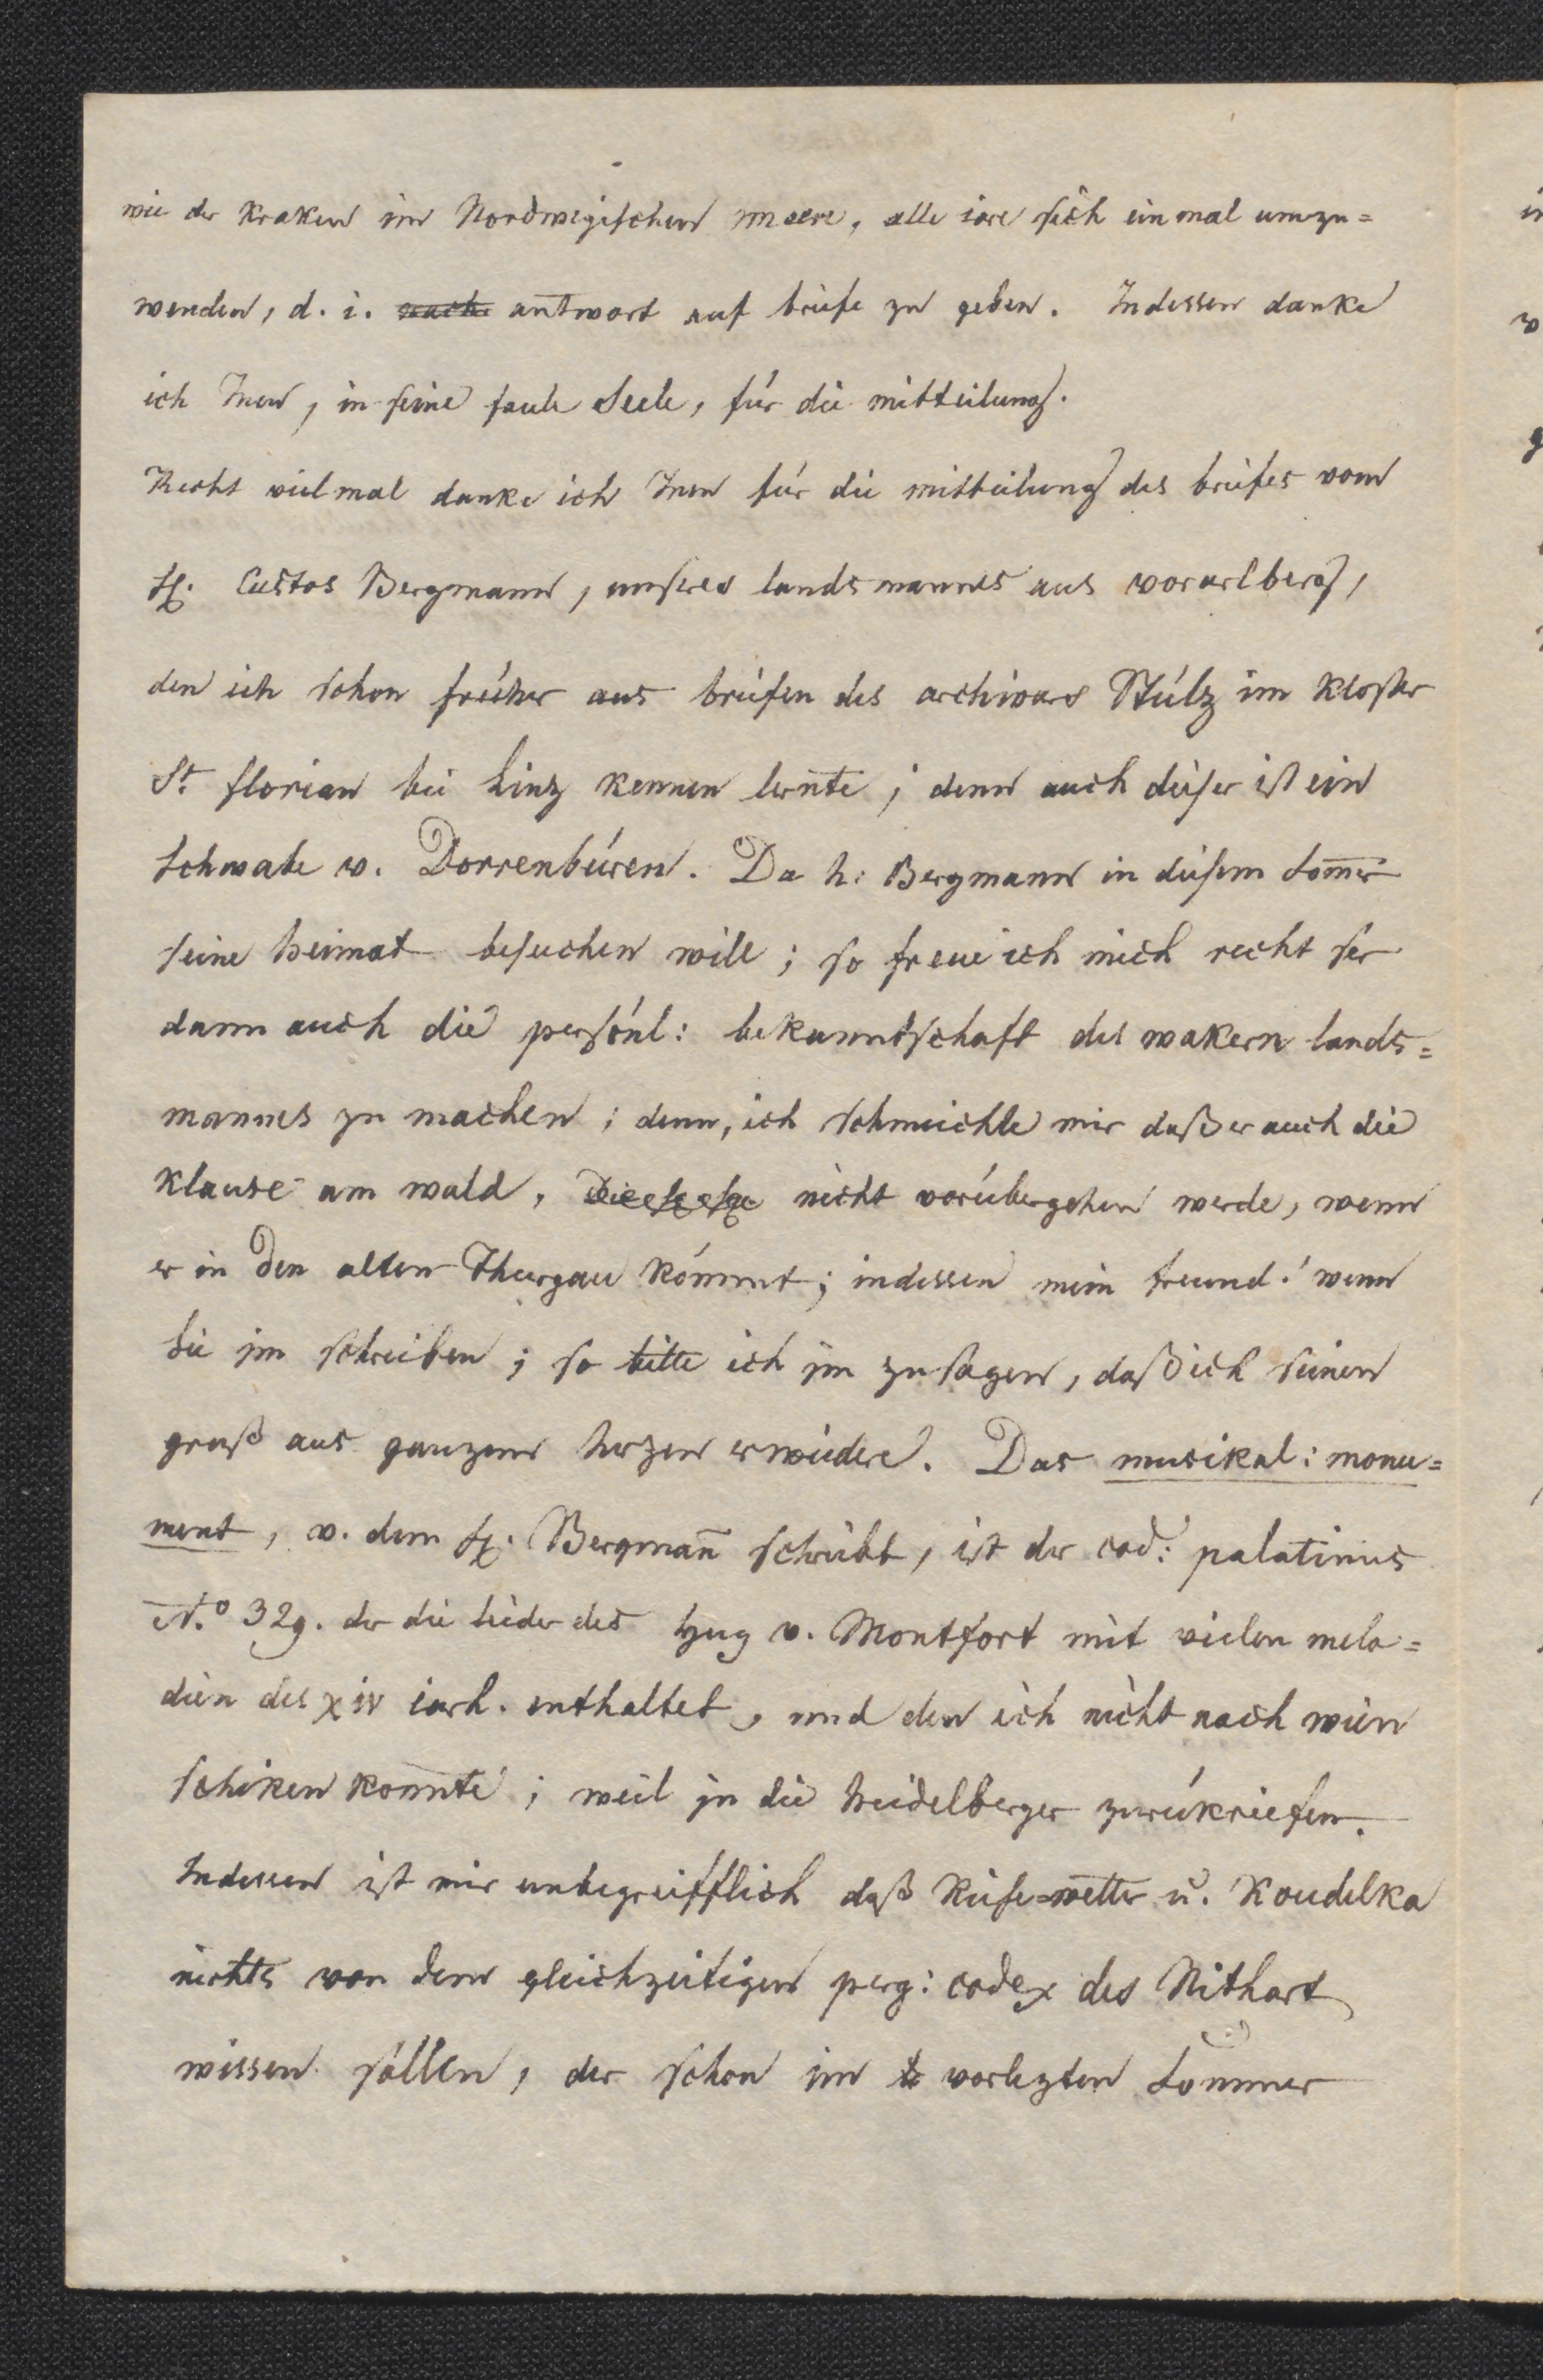 wie der kraken im Nordwegischen meere, alle iare sich einmal umzu=
wenden, d. i. antwort auf briefe zu geben. Indessen danke
ich Inen, in seine faule Seele, für die mitteilung.
Recht vielmal danke ich Inen für die mitteilung des briefes vom
H. Custos Bergmann, unseres landsmannes aus vorarlberg,
den ich schon früher aus briefen des archivars Stülz im kloster
St. florian bei Linz kennen lernte; denn auch dieser ist ein
Schwabe v. Dorrenbüren. Da h: Bergmann in diesem Somer
seine heimat besuchen will; so freue ich mich recht ser
dann auch die persönl: bekanntschaft des wakern lands=
mannes zu machen; denn, ich schmeichle mir daß er auch die
klause am wald, nicht vorübergehen werde, wenn
er in den alten Thurgau kömmt; indessen mein freund! wenn
Sie im schreiben; so bitte ich im zu sagen, daß ich seinen
gruß aus ganzem herzen erwiedere. Das musikal: monu=
ment, v. dem H. Bergman̄ schreibt, ist der cod: palatinus
N.o 329. der die lieder des Hug v. Montfort mit vielen melo=
dien des xiv iarh. enthaltet, und den ich nicht nach wien
schiken konnte; weil in die heidelberger zurükriefen.
Indessen ist mir unbegreifflich daß Kiesewetter u. Koudelka
nichts von dem gleichzeitigen perg: codex des Nithart
wissen sollen, der schon im vorlezten Sommer